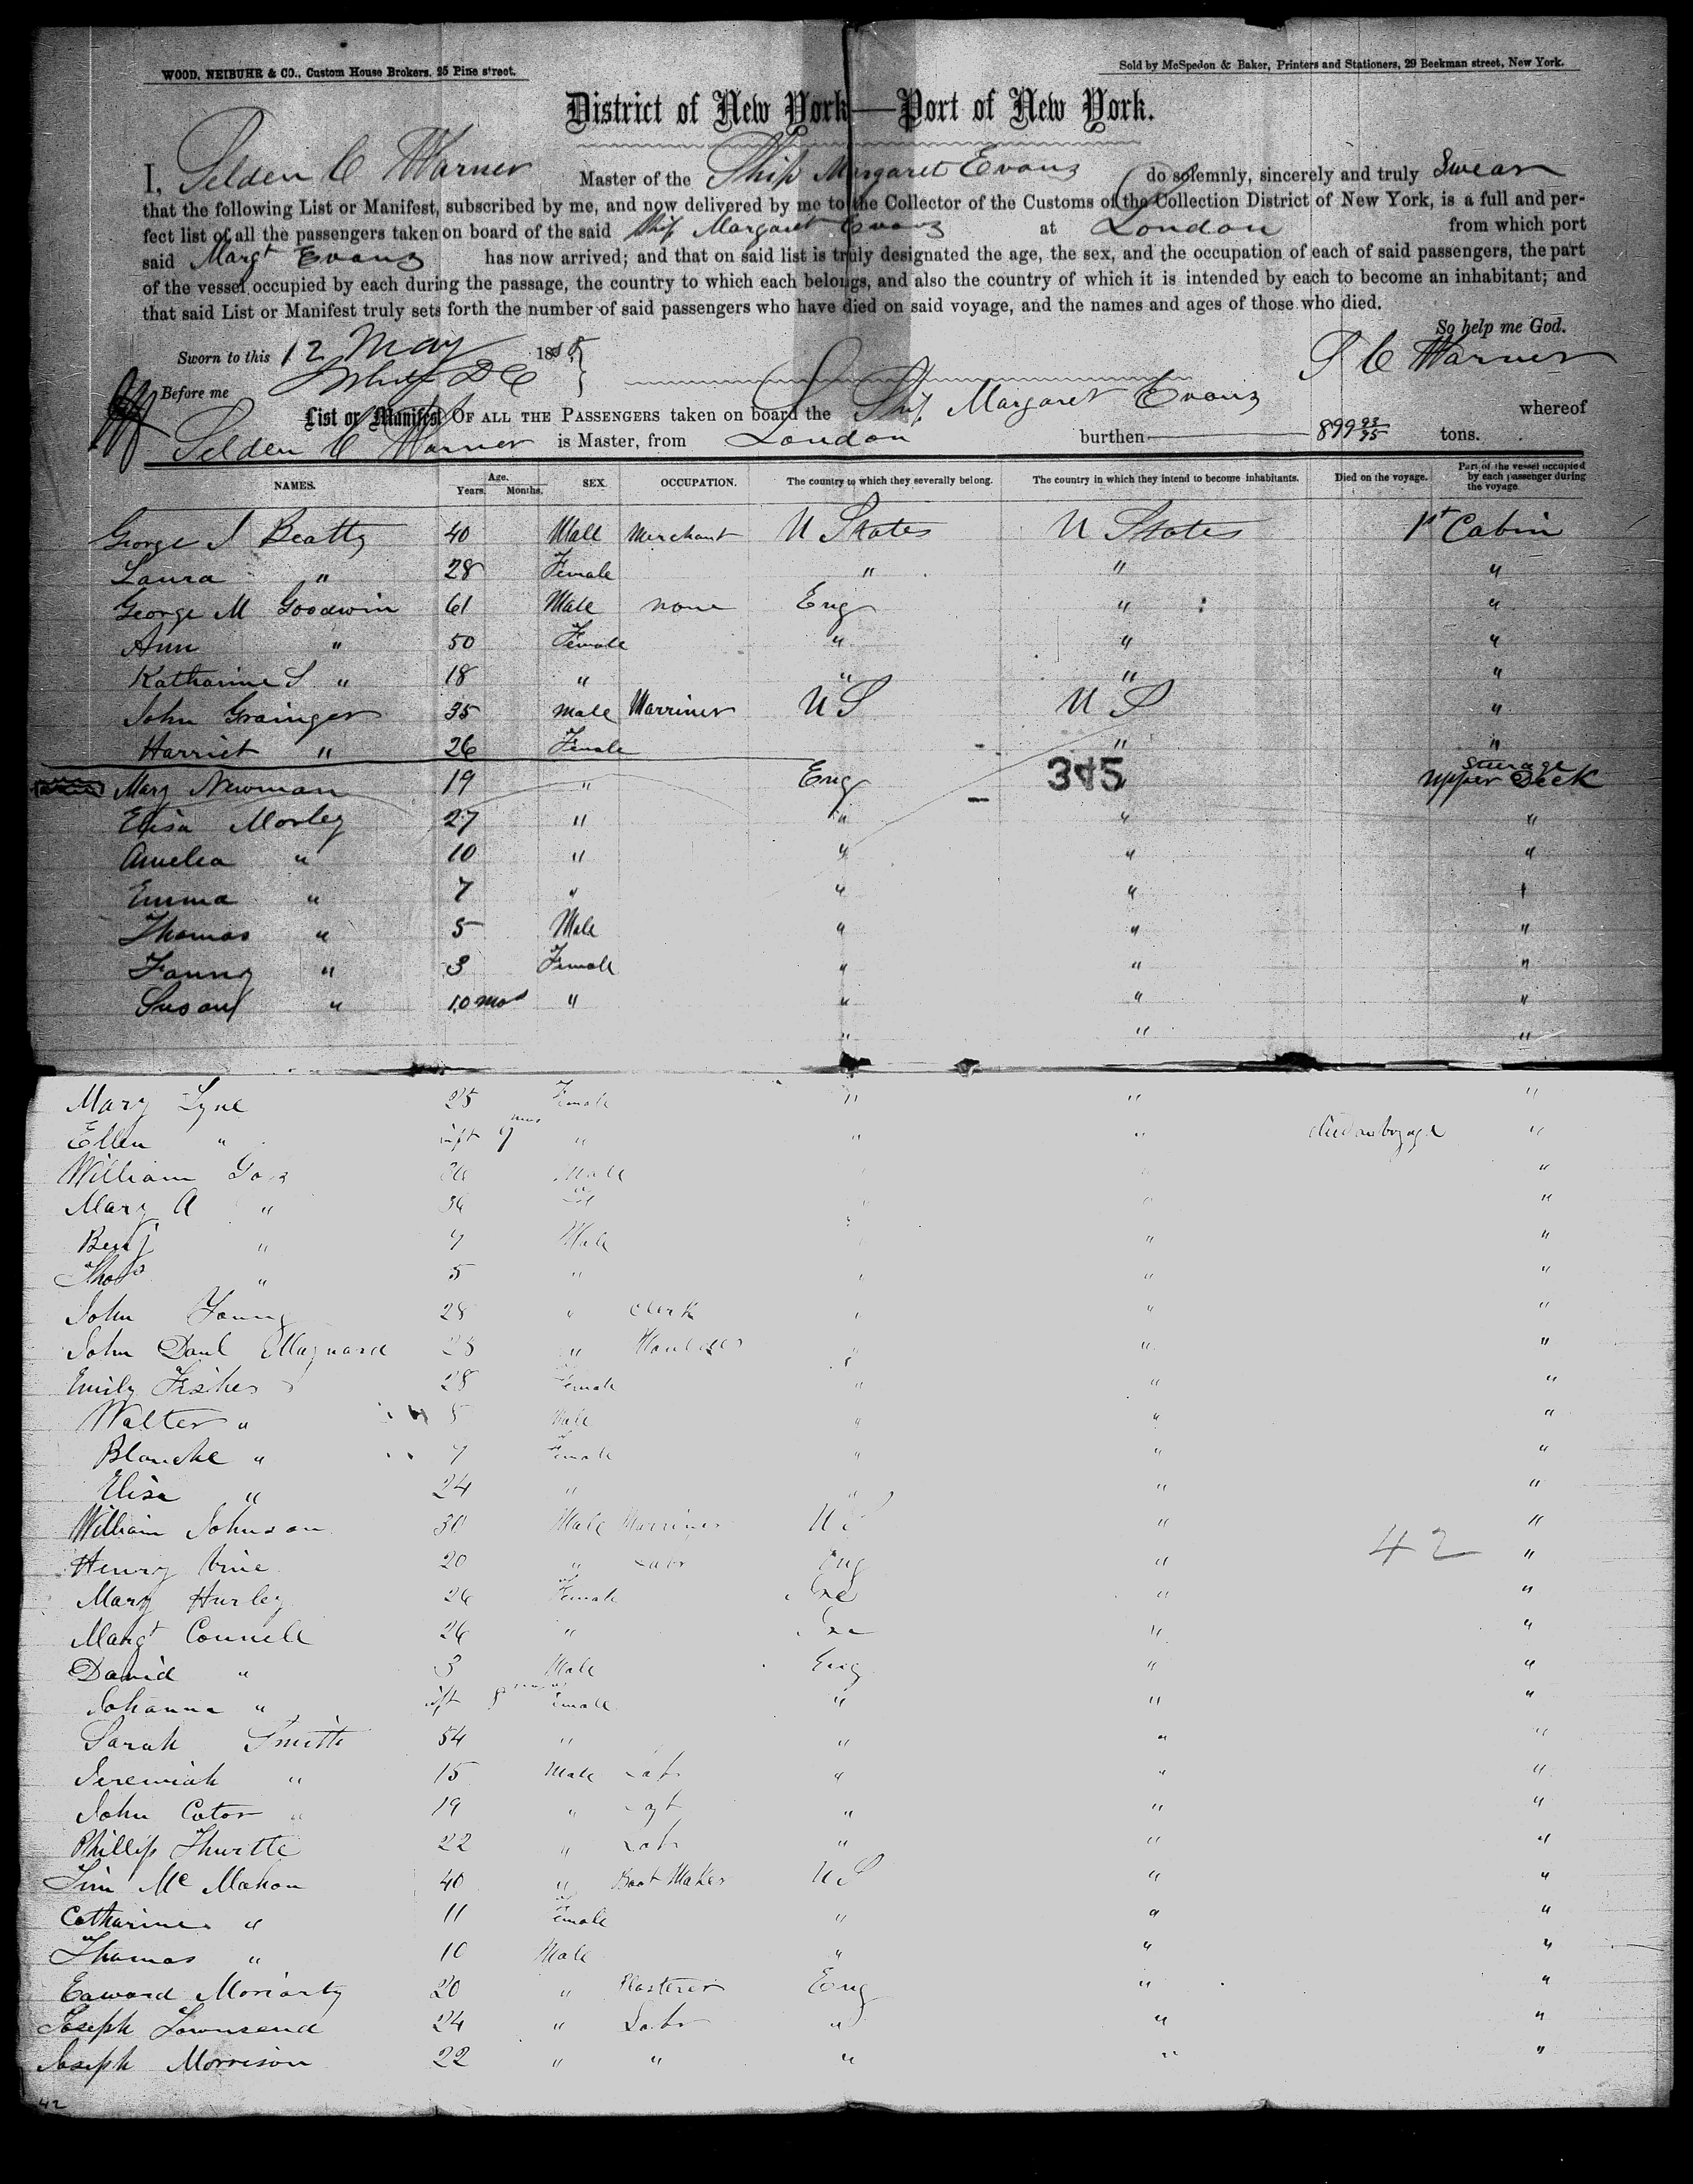 WOOD, NEIBUHR & CO., Custom House Brokers, 25 Pine street.
Sold by McSpedon & Baker, Printers and Stationers, 29 Beekman street, New York.
District of New York—Port of New York.
I, Selden C Warner Master of the Ship Margaret Evans do solemnly, sincerely and truly Swear
that the following List or Manifest, subscribed by me, and now delivered by me to the Collector of the Customs of the Collection District of New York, is a full and per-
fect list of all the passengers taken on board of the said Ship Margaret Evans at London from which port
said Margt Evans has now arrived; and that on said list is truly designated the age, the sex, and the occupation of each of said passengers, the part
of the vessel occupied by each during the passage, the country to which each belongs, and also the country of which it is intended by each to become an inhabitant; and
that said List or Manifest truly sets forth the number of said passengers who have died on said voyage, and the names and ages of those who died.
So help me God.
Sworn to this 12 May 185
S C Warner
Before me
List or Manifest OF ALL THE PASSENGERS taken on board the Ship Margaret Evans whereof
Selden C Warner is Master, from London burthen 899 93/95 tons.
NAMES. Age. Years. Months. SEX. OCCUPATION. The country to which they severally belong. The country in which they intend to become inhabitants. Died on the voyage. Part of the vessel occupied by each passenger during the voyage
George J Beatty 40 Male Merchant U States U States 1st Cabin
Laura " 28 Female " " "
George M Goodwin 61 Male none Eng " "
Ann " 50 Female " " "
Katharine S " 18 " " " "
John Grainger 35 male Marriner U S U S "
Harriet " 26 Female " "
Mary Newman 19 " Eng 345 Steerage Upper Deck
Elisa Morley 27 " " " "
Amelia " 10 " " " "
Emma " 7 " " "
Thomas " 5 Male " " "
Fanny " 3 Female " " "
Susan " 10 mos " " " "
" " "
Mary Lyne 25 Female " " "
Ellen " inft 9 mos " " " died on voyage "
William 36 Male "
Mary A " 36 " "
Benj " 7 Male " "
Thos " 5 " " "
John Young 28 " Clerk " "
John Paul Maynard 28 " " " "
Emily Fisher 28 Female " " "
Walter " 5 Male " " "
Blanche " 7 Female " " "
Elisa " 24 " " " "
William Johnson 30 Male Marriner U S " "
Henry Vine 20 " Labr Eng " 42 "
Mary Hurley 26 Female Ire " "
Margt Connell 26 " Ire " "
David " 3 Male Eng " "
Johanna " inft 8 mos Female " " "
Sarah Smith 54 " " " "
Jeremiah " 15 Male Labr " " "
John Cator " 19 " " " "
Phillip Thurtle 22 " Labr " " "
Tim Mc Mahon 40 " Boot Maker U S " "
Catharine " 11 Female " " "
Thomas " 10 Male " " "
Edward Moriarty 20 " Plasterer Eng " "
Joseph Townsend 24 " Labr " " "
Joseph Morrison 22 " " " " "
42